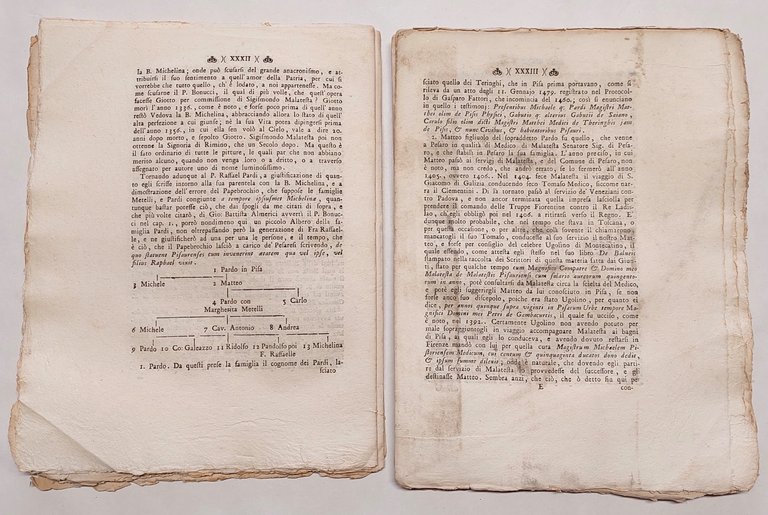 )( XXXII )(
la B. Michelina; onde può scusarsi del grande anacronismo, e at-
tribuirsi il suo sentimento a quell'amor della Patria, per cui si
vorrebbe che tutto quello, ch'è lodato, a noi appartenesse. Ma co-
me scusarne il P. Bonucci, il qual di più volle, che quest'opera
facesse Giotto per commissione di Sigismondo Malatesta? Giotto
morì l'anno 1336. come è noto, e forse poco prima di quell'anno
restò Vedova la B. Michelina, abbracciando allora lo stato di quell'
alta perfezione a cui giunse; nè la sua Vita potea dipingersi prima
dell'anno 1356. in cui ella sen volò al Cielo, vale a dire 20.
anni dopo morto, e sepolto Giotto. Sigismondo Malatesta poi non
ottenne la Signoria di Rimino, che un Secolo dopo. Ma questo è
il fato ordinario di tutte le pitture, le quali par che non abbiano
merito alcuno, quando non venga loro o a dritto, o a traverso
assegnato per autore uno di nome famosissimo.
Tornando adunque al P. Raffael Pardi, a giustificazione di quan-
to egli scrisse intorno alla sua parentela con la B. Michelina, e a
dimostrazione dell'errore del Papebrochio, che suppose le famiglie
Metelli, e Pardi congiunte a tempore ipsiusmet Michelinæ, quan-
tunque bastar potesse ciò, che dai spogli da me citati di sopra, e
che più volte citarò, di Gio: Battista Almerici avvertì il P. Bonuc-
ci nel cap. 11., porrò nondimeno quì un piccolo Albero della fa-
miglia Pardi, non oltrepassando però la generazione di Fra Raffael-
le, e ne giustificherò ad una per una le persone, e il tempo, che
è ciò, che il Papebrochio lasciò a carico de' Pesaresi scrivendo, de
quo statuent Pisaurenses cum invenerint ætatem qua vel ipse, vel
filius Raphael vixit.
1 Pardo in Pisa
3 Michele 2 Matteo
4 Pardo con 5 Carlo
Margherita Metelli
6 Michele 7 Cav. Antonio 8 Andrea
9 Pardo 10 Co: Galeazzo 11 Ridolfo 12 Pandolfo poi 13 Michelina
F. Raffaelle
1. Pardo. Da questi prese la famiglia il cognome dei Pardi, la-
sciato
)( XXXIII )(
sciato quello dei Teringhi, che in Pisa prima portavano, come si
rileva da un atto degli 11. Gennaro 1479. registrato nel Protocol-
lo di Gasparo Fattori, che incomincia del 1460., così si enunciano
in quello i testimonj: Presentibus Michaele q. Pardi Magistri Mat-
thei olim de Pisis Physici, Gabutio q. alterius Gabutii de Saiano,
Carulo filio olim dicti Magistri Matthei Medici de Thoringhis jam
de Pisis, & nunc Civibus, & habitatoribus Pisauri.
2. Matteo figliuolo del sopraddetto Pardo fu quello, che venne
a Pesaro in qualità di Medico di Malatesta Senatore Sig. di Pesa-
ro, e che stabilì in Pesaro la sua famiglia. L'anno preciso, in cui
Matteo passò ai servigj di Malatesta, e del Comune di Pesaro, non
è noto, ma non credo, che andrò errato, se lo fermerò all'anno
1405., ovvero 1406. Nel 1404. fece Malatesta il viaggio di S.
Giacomo di Galizia conducendo seco Tomaso Medico, siccome nar-
ra il Clementini. Di là tornato passò al servizio de' Veneziani con-
tro Padova, e non ancor terminata quella impresa lasciolla per
prendere il comando delle Truppe Fiorentine contro il Re Ladis-
lao, ch'egli obbligò poi nel 1406. a ritirarsi verso il Regno. E'
dunque molto probabile, che nel tempo che stava in Toscana, o
per questa occasione, o per altre, che colà sovente il chiamavano,
mancatogli il suo Tomaso, conducesse al suo servizio il nostro Mat-
teo, e forse per consiglio del celebre Ugolino di Montecatino, il
quale essendo, come attesta egli stesso nel suo libro De Balneis
stampato nella raccolta dei Scrittori di questa materia fatta dai Giun-
ti, stato per qualche tempo cum Magnifico Compatre & Domino meo
Malatesta de Malatestis Pisauriensi cum salario aureorum quingento-
rum in anno, potè consultarsi da Malatesta circa la scelta del Medico,
e potè egli suggerirgli Matteo da lui conosciuto in Pisa, se non
forse anche suo discepolo, poiche era stato Ugolino, per quanto ei
dice, per annos quinque supra viginti in Pisarum Urbe tempore Ma-
gnifici Domini mei Petri de Gambacurtis, il quale fu ucciso, come
è noto, nel 1392. Certamente Ugolino non avendo potuto per
male sopraggiuntogli in viaggio accompagnare Malatesta ai bagni
di Pisa, ai quali egli lo conduceva, e avendo dovuto restarsi in
Firenze mandò con lui per quella cura Magistrum Michaelem Pi-
storiensem Medicum, cui centum & quinquaginta ducatos dono dedit,
& ipsum summe dilexit; onde è naturale, che dovendo egli parti-
re dal servizio di Malatesta lo provvedesse del successore, e gli
destinasse Matteo. Sembra anzi, che ciò, ch'ò detto fin quì pe
E con-